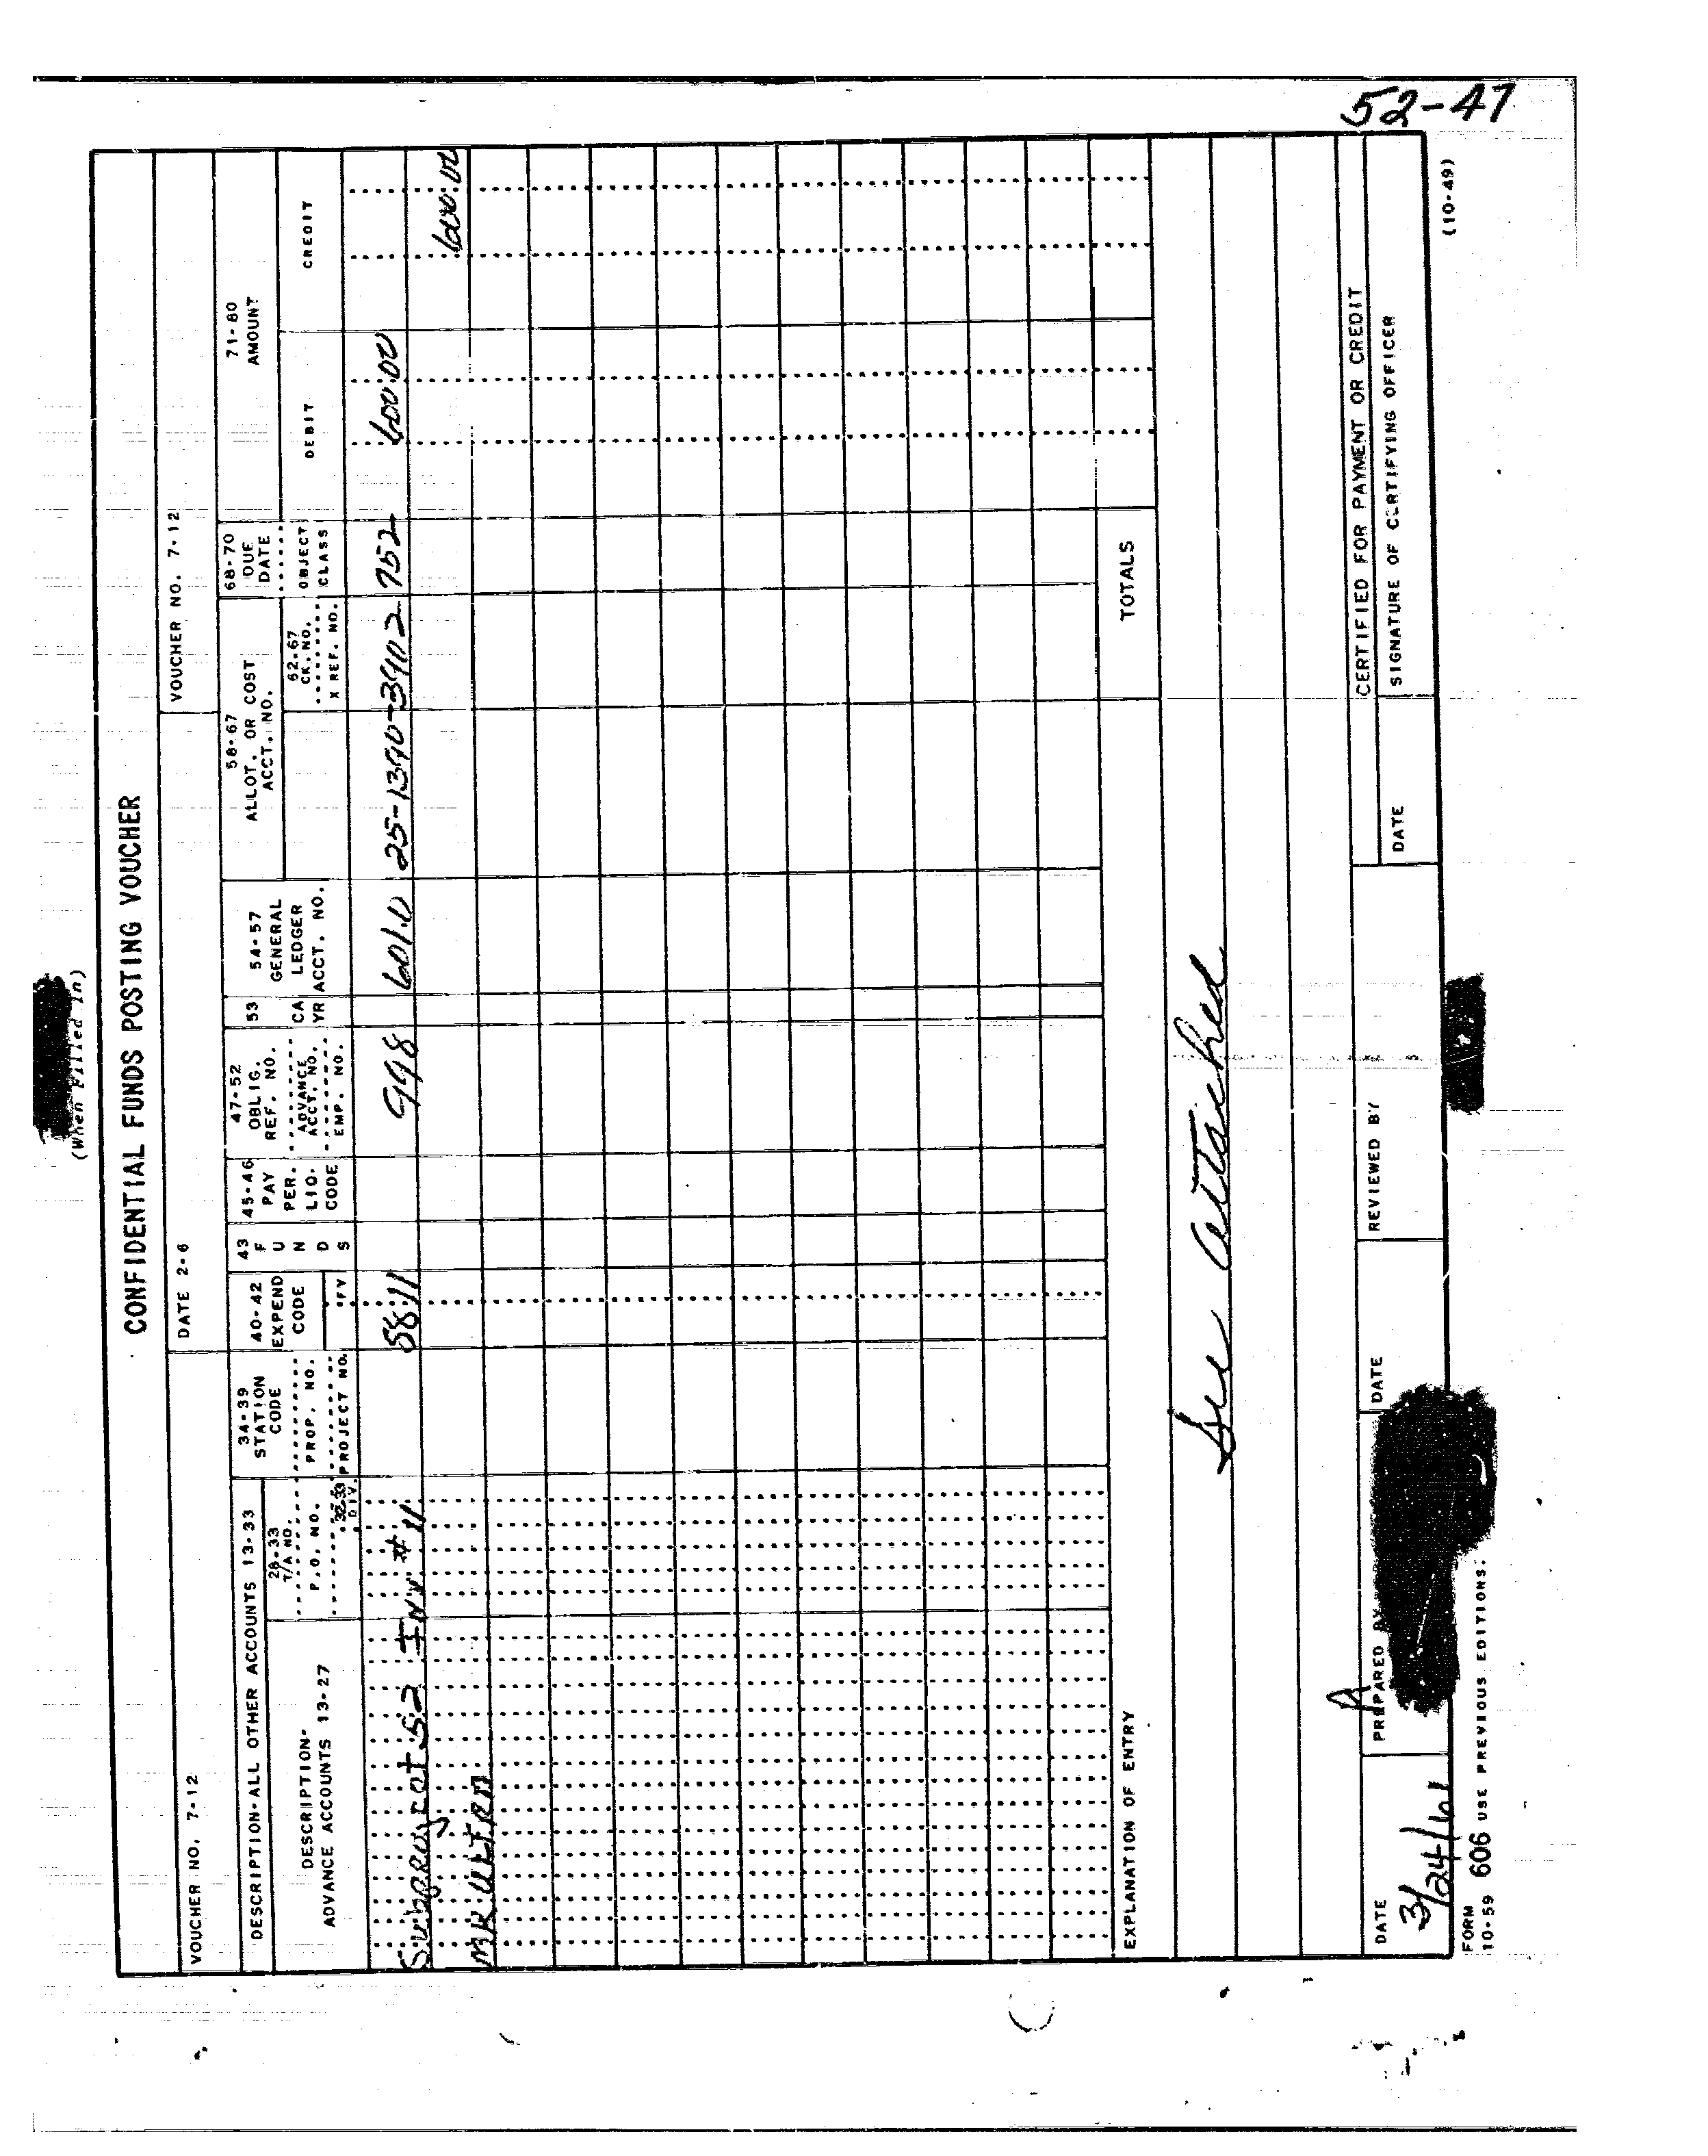 52-47
(When Filled In)
CONFIDENTIAL FUNDS POSTING VOUCHER
VOUCHER NO. 7-12
DATE 2-6
VOUCHER NO. 7-12
DESCRIPTION-ALL OTHER ACCOUNTS 13-33
DESCRIPTION-
ADVANCE ACCOUNTS 13-27
28-33
T/A NO.
P.O. NO.
32-33
DIV.
34-39
STATION
CODE
PROP. NO.
PROJECT NO.
40-42
EXPEND
CODE
FY
43
F
U
N
D
S
45-46
PAY
PER.
LIQ.
CODE
47-52
OBLIG.
REF. NO.
ADVANCE
ACCT. NO.
EMP. NO.
53
CA
YR
54-57
GENERAL
LEDGER
ACCT. NO.
58-67
ALLOT. OR COST
ACCT. NO.
62-67
CK. NO.
X REF. NO.
68-70
DUE
DATE
OBJECT
CLASS
71-80
AMOUNT
DEBIT
CREDIT
Subproject 52 Inv # 11 58 11 998 601.0 25-1390-3902 752 600.00
MKULTRA 600.00
TOTALS
EXPLANATION OF ENTRY
See Attached
CERTIFIED FOR PAYMENT OR CREDIT
DATE
3/24/61
PREPARED BY
DATE
REVIEWED BY
DATE
SIGNATURE OF CERTIFYING OFFICER
FORM
10-59 606 USE PREVIOUS EDITIONS.
(10-49)